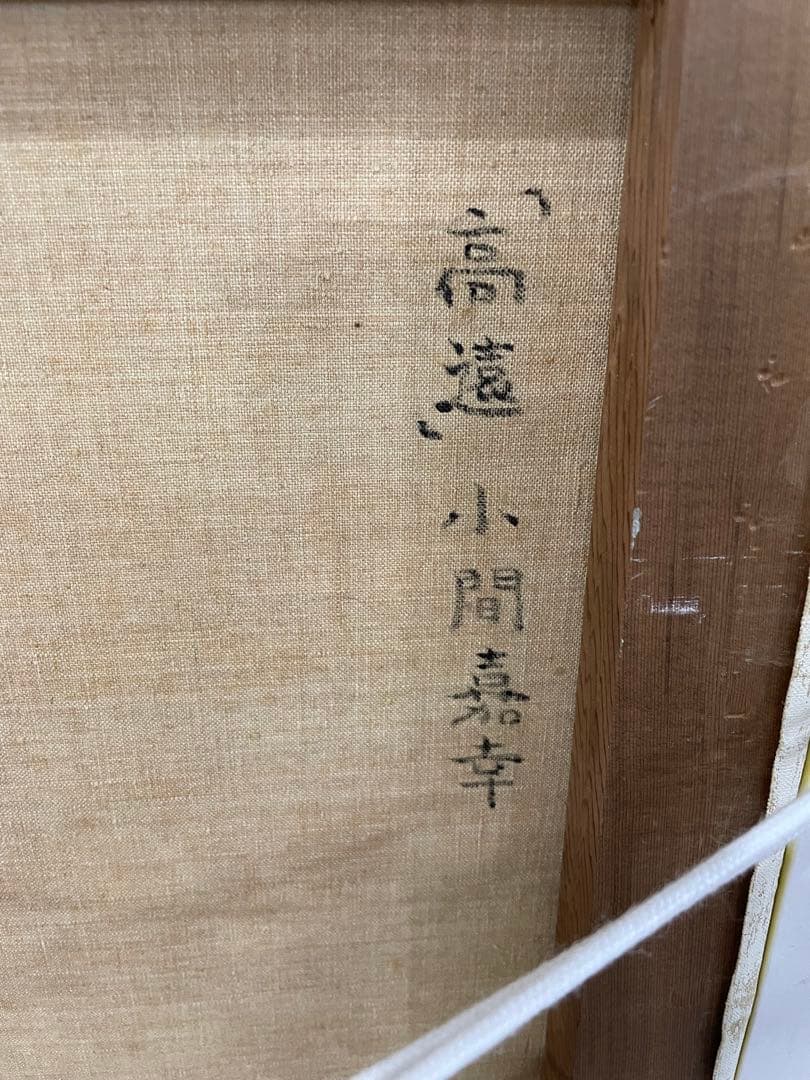 「高遠」 小間嘉幸